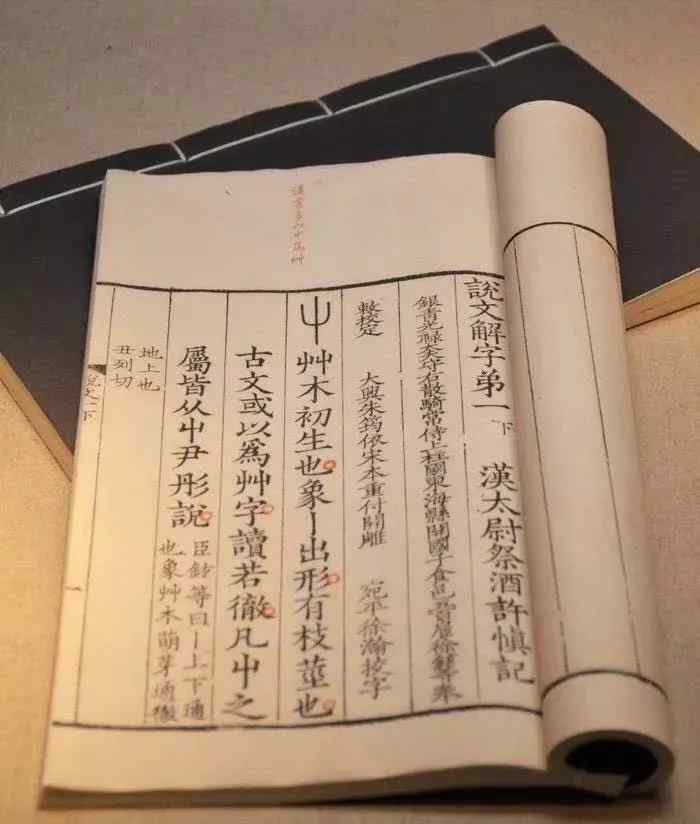 漢書多以屮爲艸
說文解字弟一下 漢太尉祭酒許愼記
銀青光祿大夫守右散騎常侍上柱國東海縣開國子食邑五百戶臣徐鉉等奉
敕挍定 大興朱筠依宋本重付開雕 宛平徐瀚挍字
屮 艸木初生也象丨出形有枝莖也
古文或以爲艸字讀若徹凡屮之
屬皆从屮尹彤說 臣鉉等曰丨上下通
也象艸木萌芽通徹
地上也
丑列切
說文一下